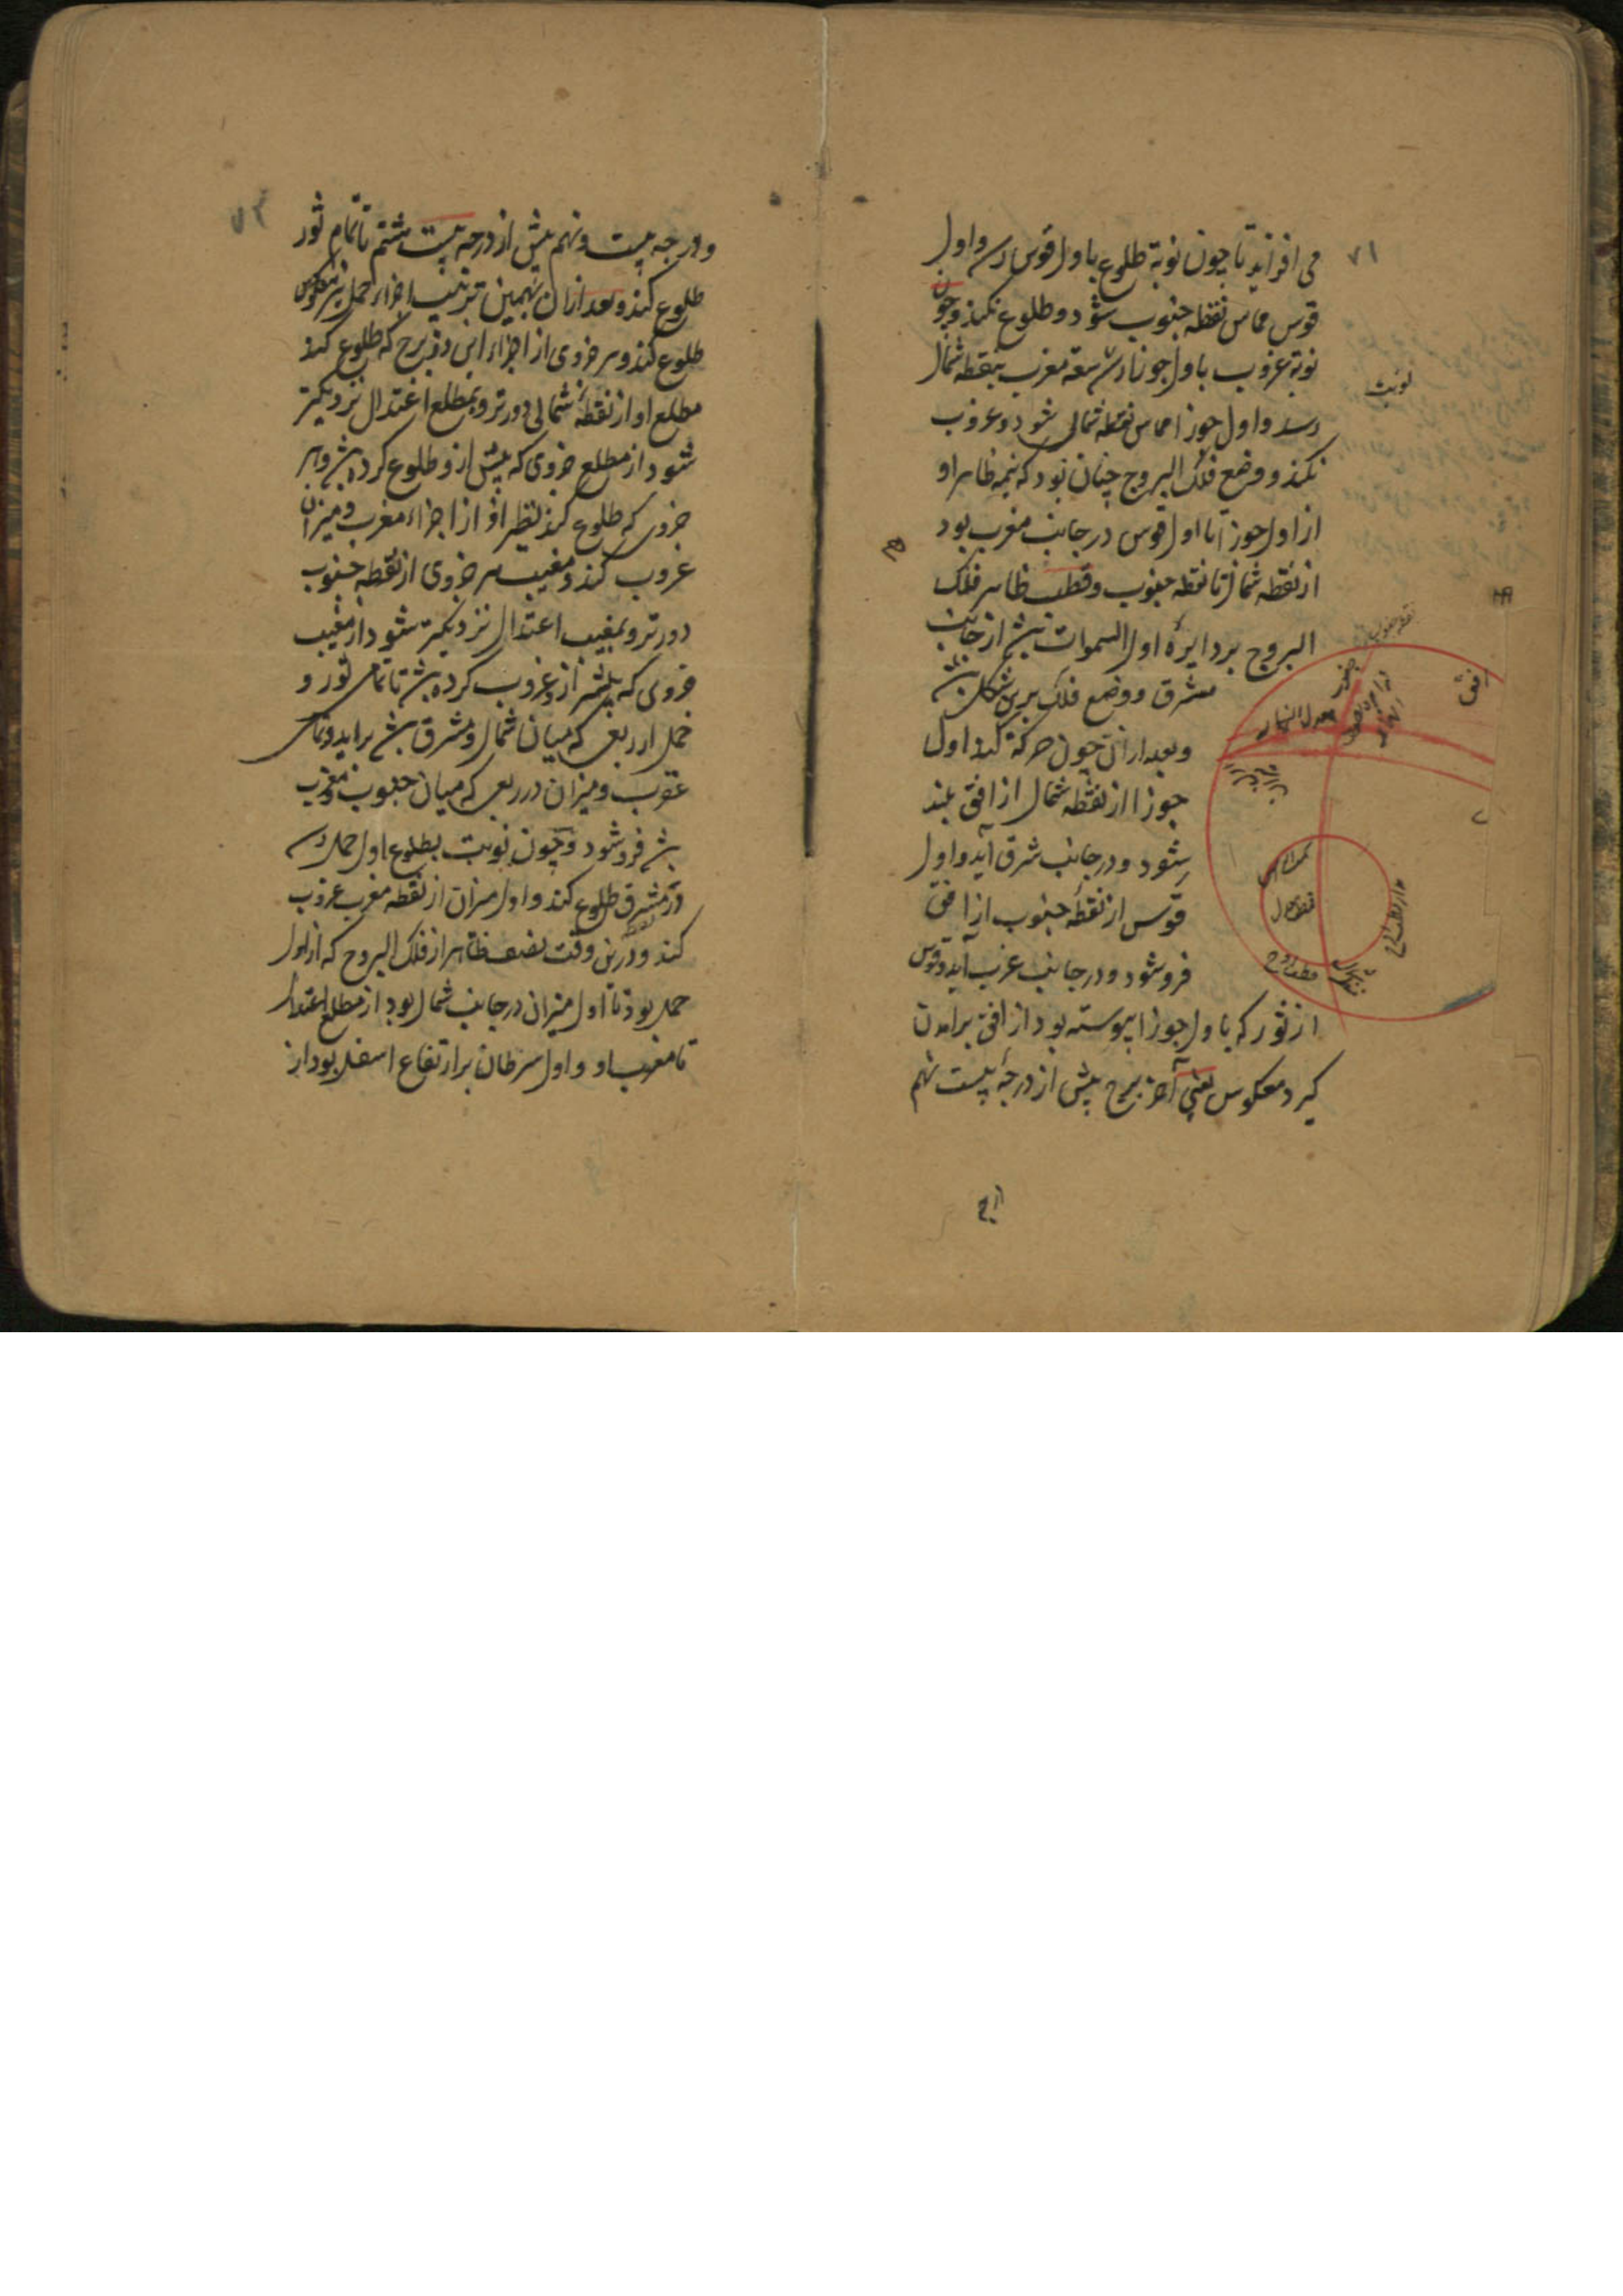 ۷۱
می افزاید تا چون نوبة طلوع باول قوس رسد و اول
قوس مماس نقطه جنوب شود و طلوع نکند و چون
نوبة غروب باول جوزا رسد سعة مغرب بنقطه شمال
نوبت
رسد و اول جوزا مماس نقطه شمالی شود و غروب
نکند و وضع فلک البروج چنان بود که نیمه ظاهر او
از اول جوزا تا اول قوس در جانب مغرب بود
از نقطه شمال تا نقطه جنوب و قطب ظاهر فلک
البروج بر دایره اول السموات باشد از جانب
مشرق و وضع فلک برین شکل باشد
و بعد از آن چون حرکة کند اول
جوزا از نقطه شمال از افق بلند
شود و در جانب شرق آید و اول
قوس از نقطه جنوب از افق
فروشود و در جانب غرب آید و قوس
از ثور که باول جوزا پیوسته بود از افق برآمدن
گیرد معکوس یعنی آخر برج پیش از درجه بیست نهم
افق
نقطه جنوب
معدل النهار
قطب معدل
قطب البروج
و درجه بیست و نهم پیش از درجه بیست هشتم تا تمام ثور
طلوع کند و بعد از آن بهمین ترتیب اجزاء حمل نیز معکوس
طلوع کند و هر جزوی از اجزاء این دو برج که طلوع کند
مطلع او از نقطه شمالی دورتر و بمطلع اعتدال نزدیکتر
شود از مطلع جزوی که پیش ازو طلوع کرده باشد و هر
جزوی که طلوع کند نظیر او از اجزاء مغرب و میزان
غروب کند و مغیب هر جزوی از نقطه جنوب
دورتر و بمغیب اعتدال نزدیکتر شود از مغیب
جزوی که پیشتر ازو غروب کرده باشد تا تمامی ثور و
حمل از ربعی که میان شمال و مشرق باشد برآید و تمامی
عقرب و میزان در ربعی که میان جنوب و مغرب
باشد فروشود و چون نوبت بطلوع اول حمل رسد
از مشرق طلوع کند و اول میزان از نقطه مغرب غروب
کند و درین وقت نصف ظاهر از فلک البروج که از اول
حمل بود تا اول میزان در جانب شمال بود از مطلع اعتدال
تا مغرب او و اول سرطان بر ارتفاع اسفل بود از